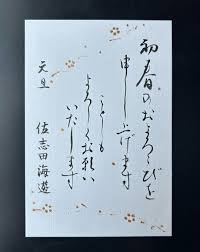 初春のおよろこびを
申し上げます
ことしも
よろしくお願い
いたします
元旦
佐志田海遊